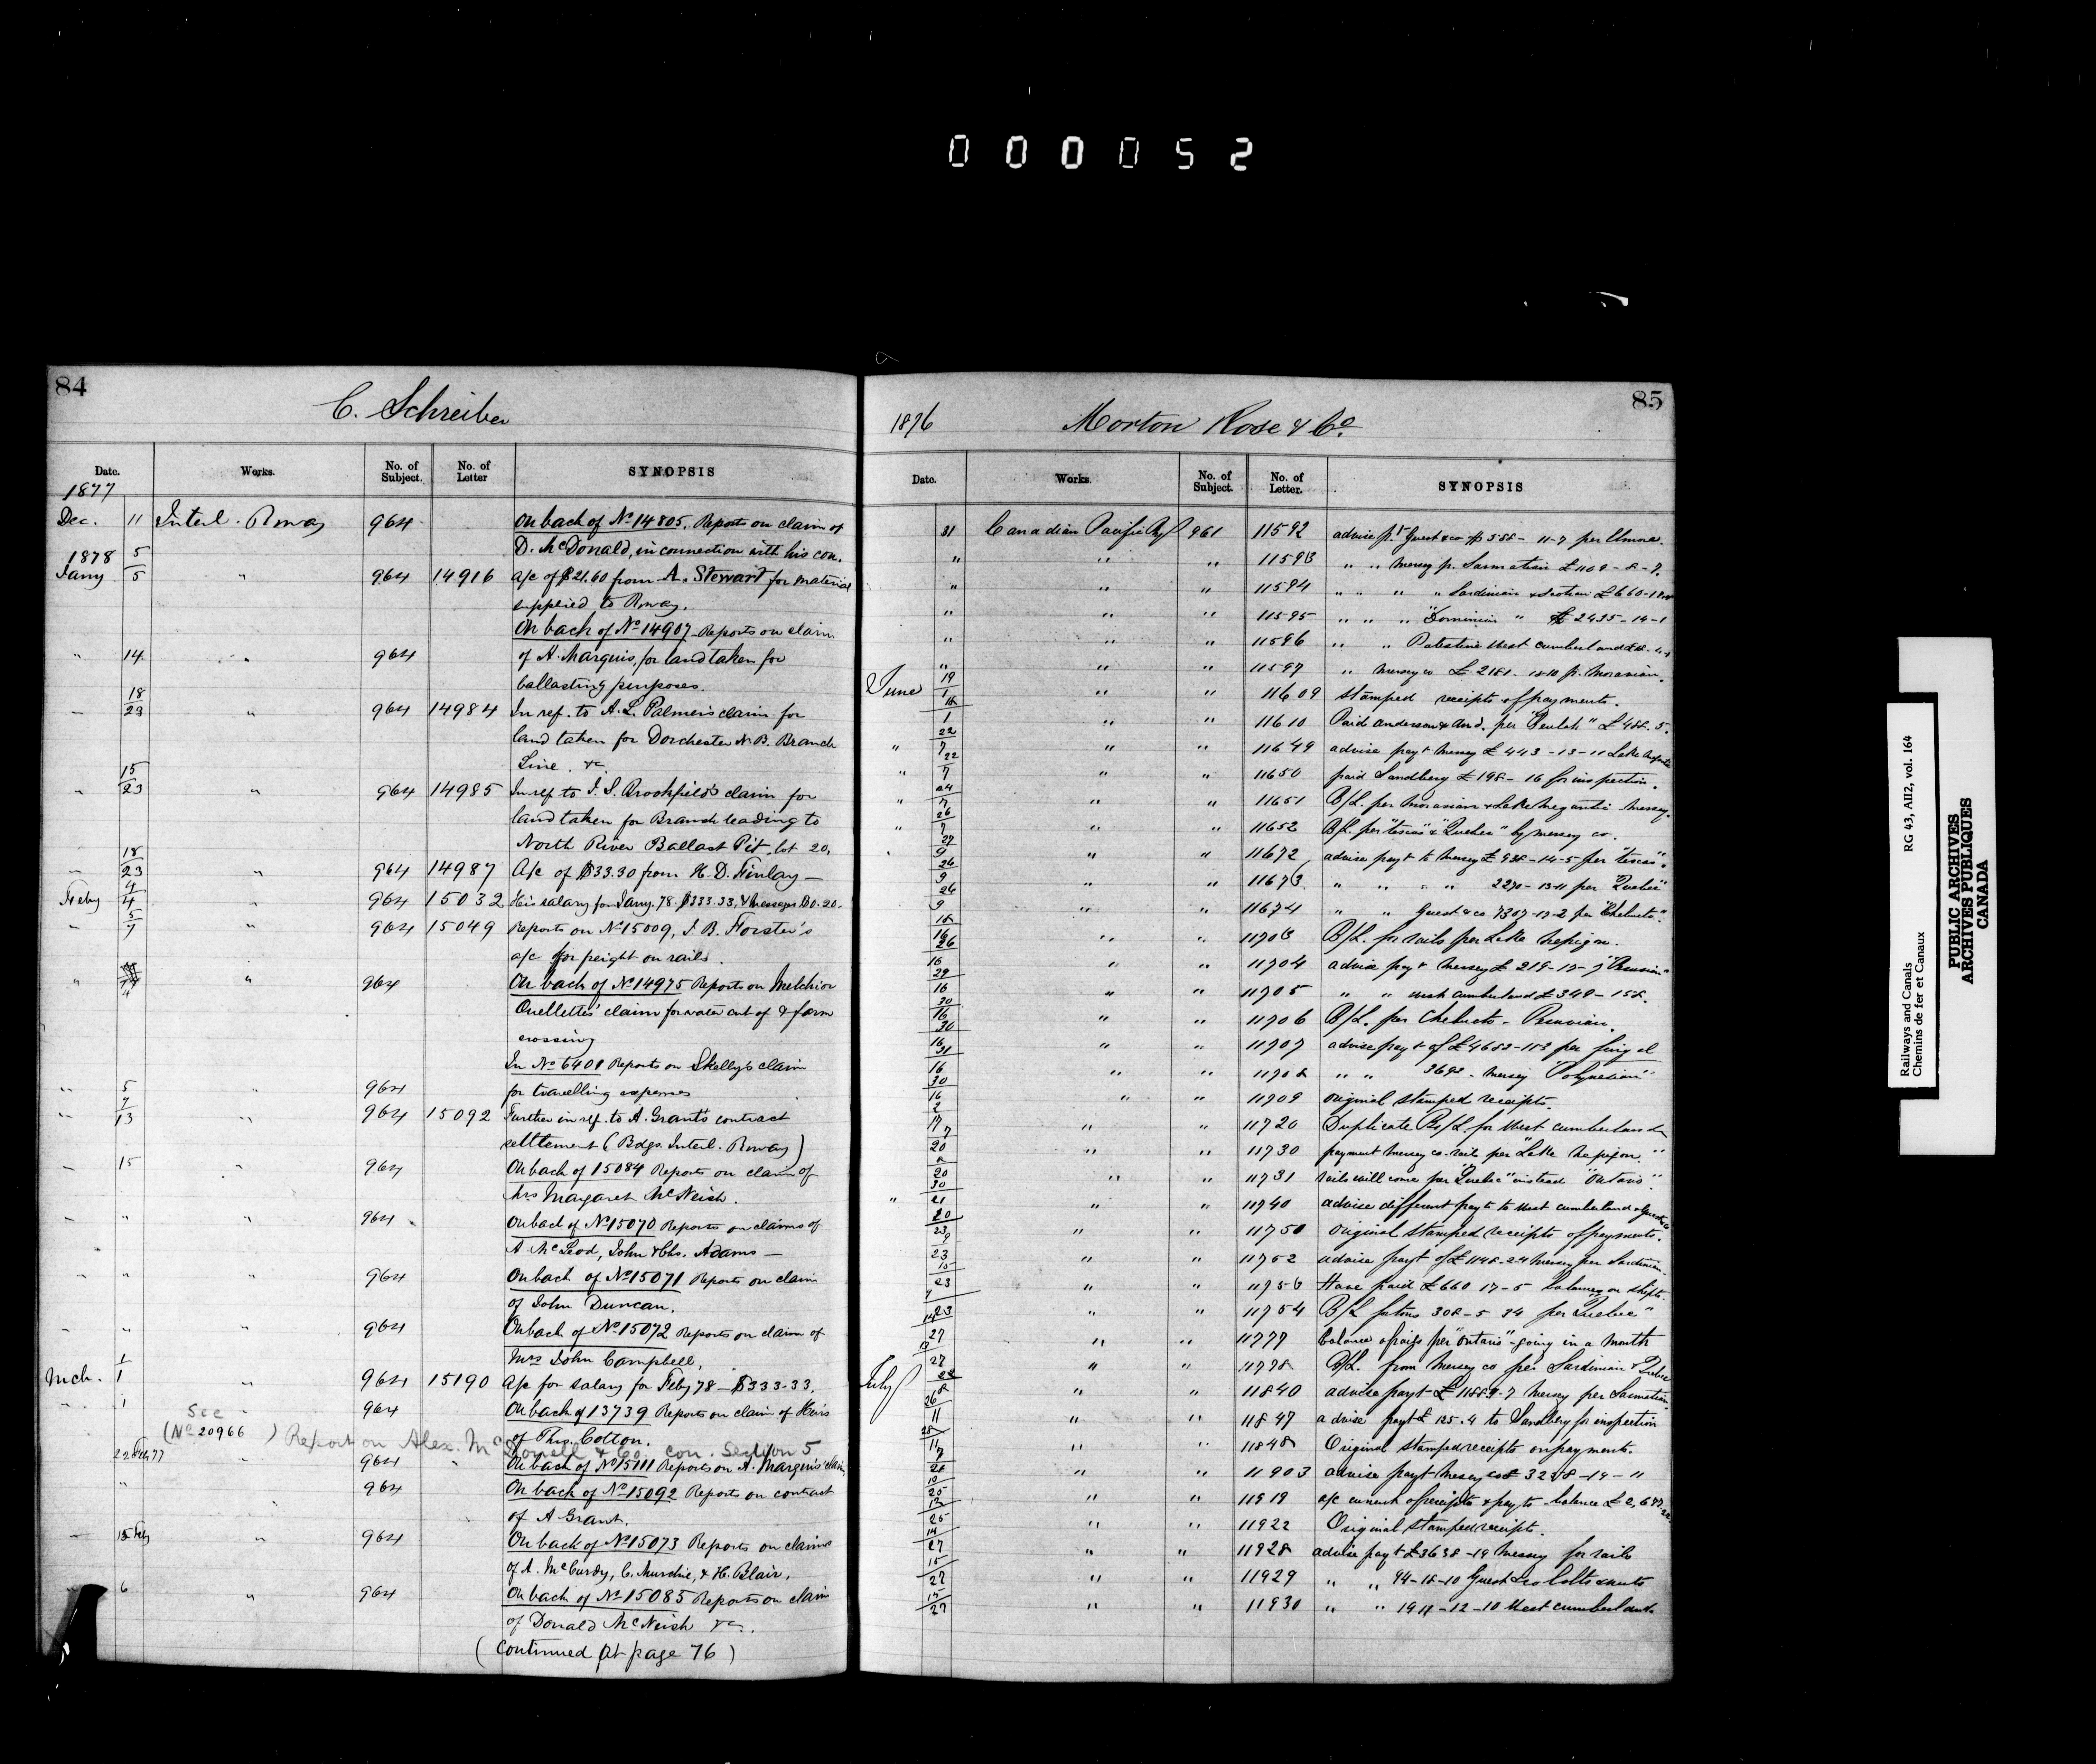 000052
84
C. Schreiber
Date. Works. No. of Subject. No. of Letter SYNOPSIS
1877
Dec. 11 Interl. Rway 964 On back of No 14805. Reports on claim of
D. McDonald, in connection with his con.
1878 5
Jany 5 " 964 14916 a/c of $21.60 from A. Stewart for material
supplied to Rway.
On back of No 14907 Reports on claim
" 14 " 964 of A. Marquis, for land taken for
ballasting purposes.
18
23 " 964 14984 In ref. to A. L. Palmer's claim for
land taken for Dorchester N.B. Branch
Line &c
15
" 23 " 964 14985 In ref to J. S. Brookfield's claim for
land taken for Branch leading to
North River Ballast Pit, lot 20.
18
" 23 " 964 14987 A/c of $33.30 from H. D. Finlay —
4
Feby 4 " 964 15032 His salary for Jany. 78. $333.33, & messages $0.20.
5
" 7 964 15049 Reports on No 15009, J. B. Forster's
a/c for freight on rails.
" 4 " 964 On back of No 14975 Reports on Melchior
Ouellette's claim for water cut of & farm
crossing
In No 6401 Reports on Skelly's claim
" 5 " 964 for travelling expenses
7
" 13 " 964 15092 Further in ref. to A. Grant's contract
settlement (Bdgs. Interl. Rway)
" 15 " 964 On back of 15084 Reports on claim of
Mrs Margaret McNeish.
" " " 964 On back of No 15070 Reports on claims of
A McLeod, John & Chs. Adams —
" " " 964 On back of No 15071 Reports on claim
of John Duncan.
" " " 964 On back of No 15072 Reports on claim of
Mrs John Campbell,
1
Mch. 1 964 15190 A/c for salary for Feby 78 — $333.33.
" 1 " 964 On back of 13739 Reports on claim of Heirs
of Ths. Cotton.
See
(No 20966 ) Report on Alex. McDonell & Co. con. Section 5
22 Feby 77 " 964 On back of No 15111 Reports on A. Marquis' claim
" " 964 On back of No 15092 Reports on contract
of A Grant.
15 Feby " 964 On back of No 15073 Reports on claims
of A. McCurdy, C. Murchie, & H. Blair.
6 " 964 On back of No 15085 Reports on claim
of Donald McNeish &c.
(Continued at page 76)
85
1876 Morton Rose & Co.
Date. Works. No. of Subject. No. of Letter. SYNOPSIS
31 Canadian Pacific Ry 961 11592 advise pt Guest & co 11-7 per
" " " 11593 " " Mersey p. Sarmatian £1109-8-7.
" " " 11594 " " " " Sardinian & Scotian £660
" " " 11595 " " " "Dominion" " £2435-14-1
" " " 11596 " " Palestine West Cumberland
" " " 11597 " Mersey co £2181-18-10 p. Moravian.
June 19
1 " " 11609 stamped receipts of payments.
1 " " 11610 Paid Anderson & And. per "Beulah" £488.5.
22
" 7 " " 11649 advise payt Mersey £443-13-11 Lake Megantic
22
" 7 " " 11650 paid Sandberg £198-16 for inspection.
24
" 7 " " 11651 B/L. per Moravian & Lake Megantic Mersey.
26
" 7 " " 11652 B/L. per & "Quebec" by Mersey co.
27
9 " " 11672 advise payt to Mersey £938-14-5 per
26
9 " " 11673 " " " " 2270-13-11 per "Quebec"
26
9 " " 11674 " " Guest & co 7307-17-2 per "Chebucto".
16 " " 11703 B/L. for rails per Lake Nepigon.
26
16 " " 11704 advise payt Mersey £218
29
16 " " 11705 " " West Cumberland £349-158.
30
16 " " 11706 B/L. per Chebucto - Peruvian.
30
16 " " 11707 advise payt of £4682 per
31
16 " " 11708 " " 3692 - Mersey "Polynesian"
30
16 " " 11709 original stamped receipts.
2
17 " " 11720 Duplicate Bs/L. for West Cumberland
7
20 " " 11730 payment Mersey co. rails per "Lake Nepigon."
20 " " 11731 rails will come per "Quebec" instead "Ontario".
30
" 21 " " 11740 advise different payts to West Cumberland & Guest & Co
20
23 " " 11750 original stamped receipts of payments.
9
23 " " 11752 advise payt of £1148-24 Mersey per Sardinian.
15
23 " " 11753 Have paid £660 17-5
23 " " 11754 B/L for tons 308-5 34 per "Quebec"
27 " " 11777 balance of rails per "Ontario" going in a month
13
27 " " 11778 B/L. from Mersey co per Sardinian & Quebec
July 8 " " 11840 advise payt Mersey per Sarmatian.
26
11 " " 11847 advise payt £125.4 to Sandberg for inspection
28
11 " " 11848 Original stamped receipts on payments.
21 " " 11903 advise payt Mersey co £3238-19-11
25 " " 11919 a/c current of receipts & payts balance
25 " " 11922 Original stamped receipts.
14
27 " " 11928 advise payt £3638-19 Mersey for rails
15
27 " " 11929 " " 94-18-10 Guest & co bolts & nuts
15
27 " " 11930 " " 1911-12-10 West Cumberland
Railways and Canals RG 43, AII2, vol. 164
Chemins de fer et Canaux
PUBLIC ARCHIVES
ARCHIVES PUBLIQUES
CANADA